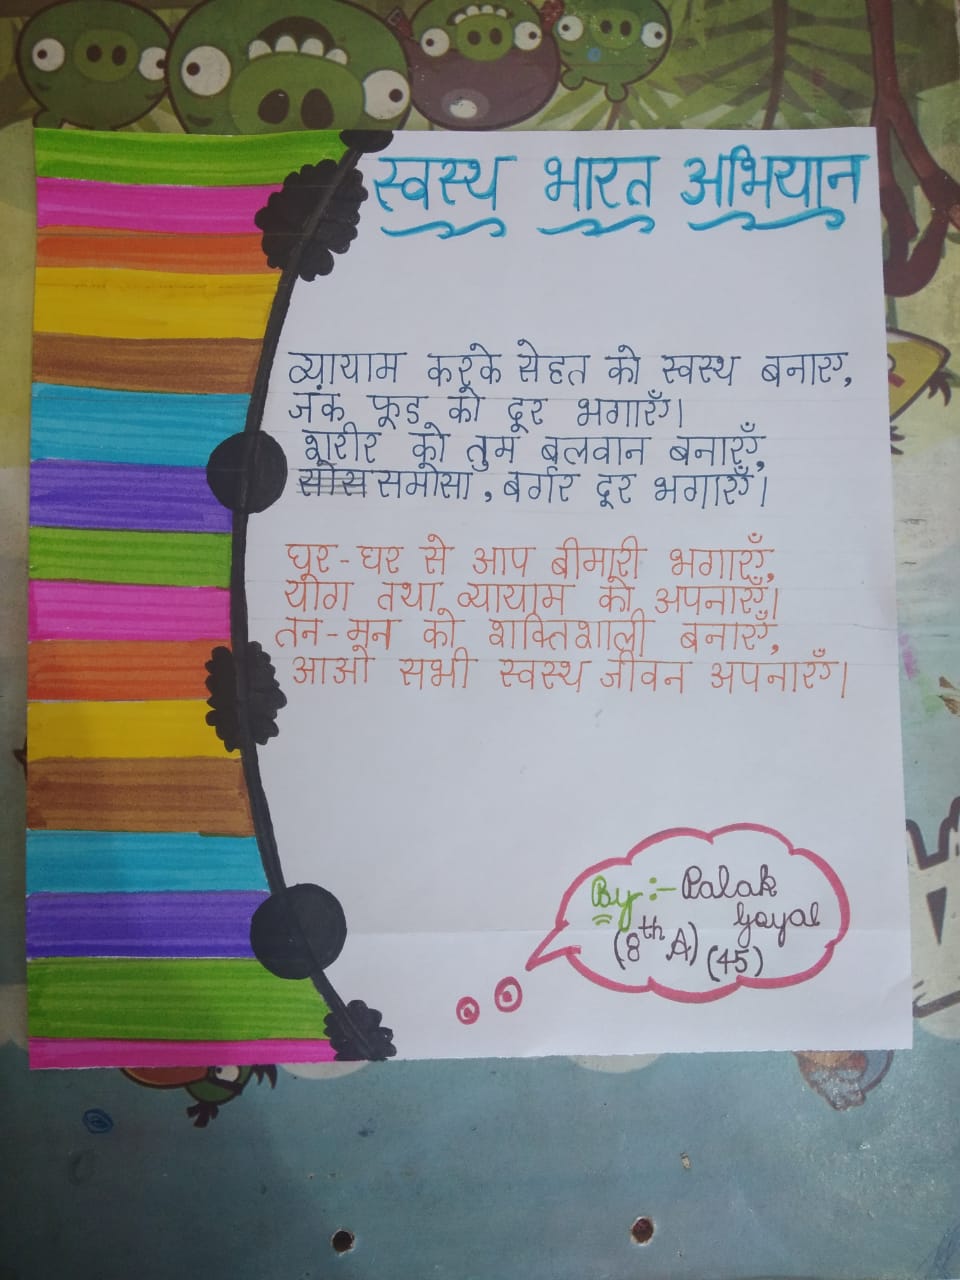 स्वस्थ भारत अभियान
व्यायाम करके सेहत को स्वस्थ बनाए,
जंक फूड को दूर भगाएँ।
शरीर को तुम बलवान बनाएँ,
सोस समोसा, बर्गर दूर भगाएँ।
घर-घर से आप बीमारी भगाएँ,
योग तथा व्यायाम को अपनाएँ।
तन-मन को शक्तिशाली बनाएँ,
आओ सभी स्वस्थ जीवन अपनाएँ।
By :- Palak
Goyal
(8th A) (45)